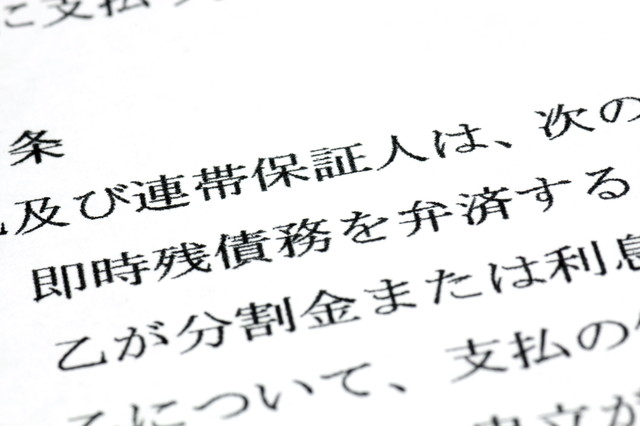 に支払
条
及び連帯保証人は、次の
即時残債務を弁済する
乙が分割金または利息
乙について、支払の
申立が